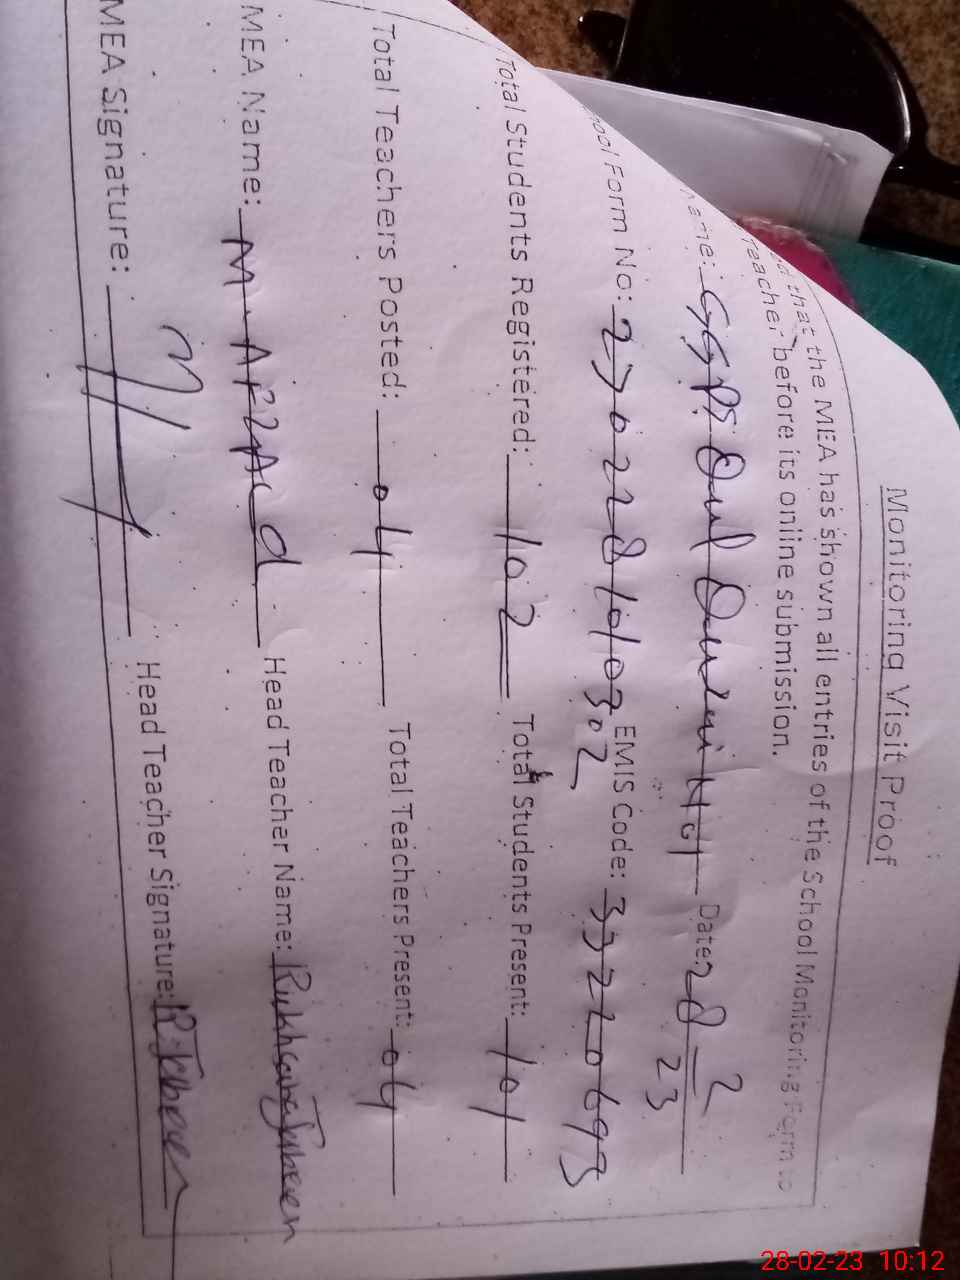 Monitoring Visit Proof
that the MEA has shown all entries of the School Monitoring Form to
Teacher before its online submission.
Name: GGPS Date: 28 2 23
School Form No: EMIS Code: 33210693
Total Students Registered: 102 Total Students Present: 101
Total Teachers Posted: 04 Total Teachers Present: 04
MEA Name: M. AFZAL Head Teacher Name: Rukhsana
MEA Signature: Head Teacher Signature:
28-02-23 10:12